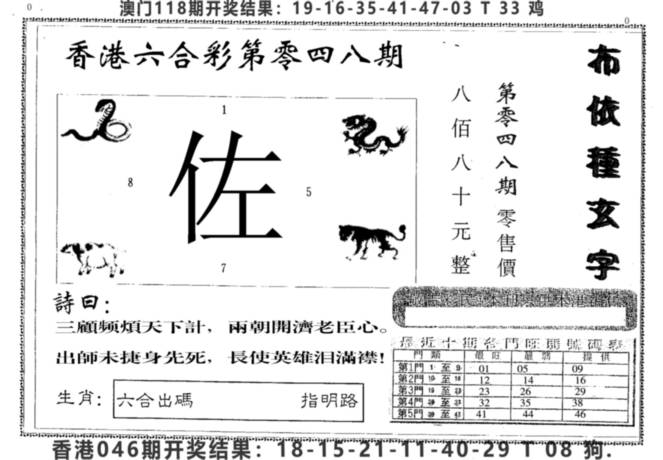 澳门118期开奖结果：19-16-35-41-47-03 T 33 鸡
0
0
香港六合彩第零四八期
1
8
佐
5
7
布依種玄字
第零四八期零售價
八佰八十元整
詩曰：
三顧频煩天下計，兩朝開濟老臣心。
出師未捷身先死，長使英雄泪滿襟！
生肖：
六合出碼 指明路
最近十期各門旺開號碼表
門類 提供
第1門 1 至 9 01 05 09
第2門 10 至 18 12 14 16
第3門 至 23 26 29
第4門 至 32 35 38
第5門 至 41 44 46
香港046期开奖结果：18-15-21-11-40-29 T 08 狗.